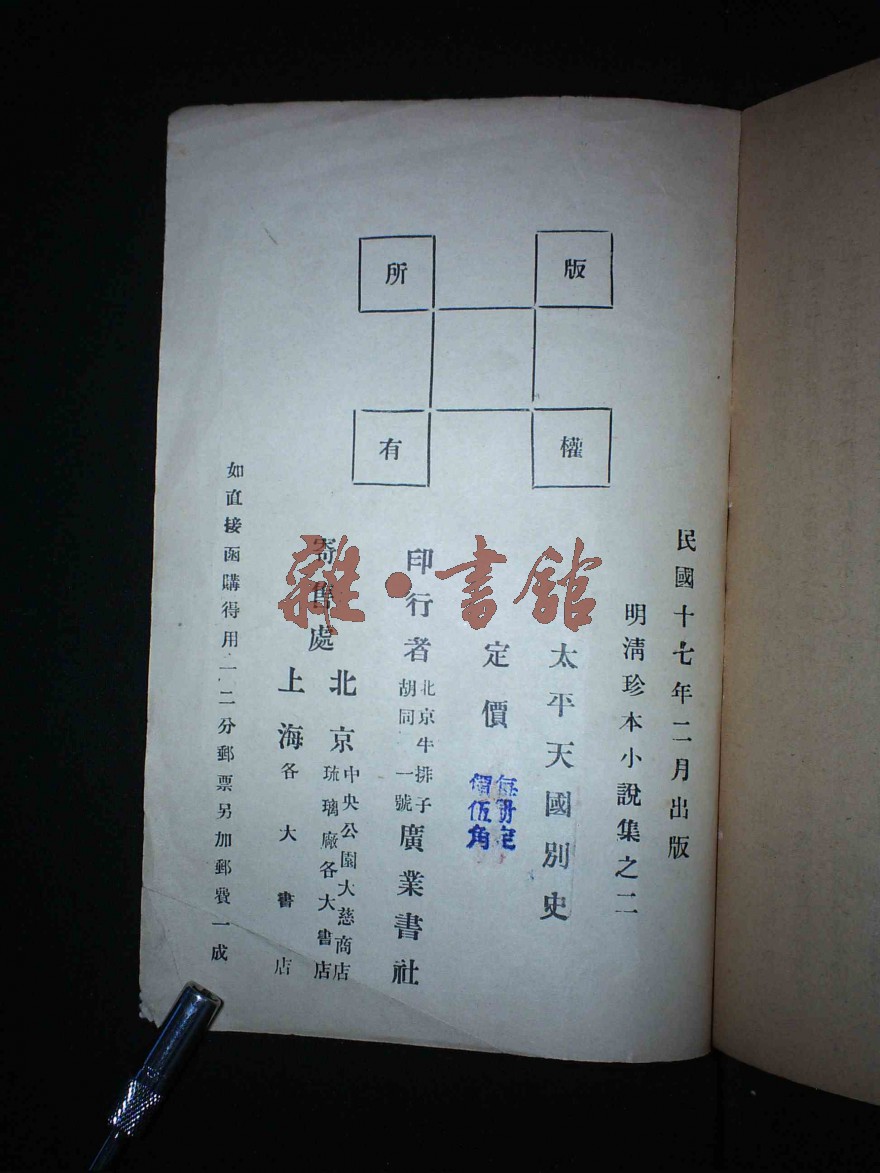 版權所有
民國十七年二月出版
明清珍本小說集之二
太平天國別史
定價
每册定
價伍角
印行者
北京牛排子
胡同一號
廣業書社
寄售處
北京
中央公園大慈商店
琉璃廠各大書店
上海
各大書店
如直接函購得用一二分郵票另加郵費一成
雜·書館